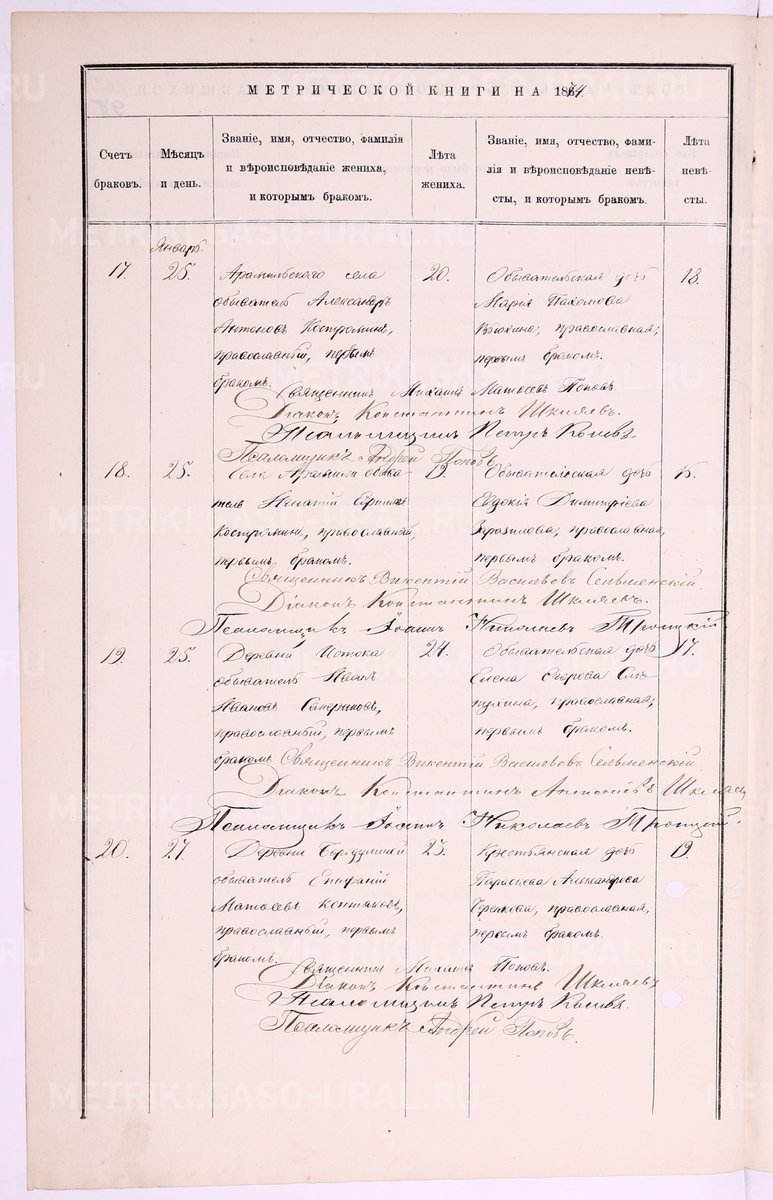 МЕТРИЧЕСКОЙ КНИГИ НА 1874.
Счетъ браковъ.
Мѣсяцъ и день.
Званіе, имя, отчество, фамилія
и вѣроисповѣданіе жениха,
и которымъ бракомъ.
Лѣта жениха.
Званіе, имя, отчество, фами-
лія и вѣроисповѣданіе невѣ-
сты, и которымъ бракомъ.
Лѣта невѣ-
сты.
Январь.
17. 25. Арамильскаго села 20. Обывательская дочь 18.
обыватель Александръ Марія Пахомова
Антоновъ Костроминъ, православная,
православный, первымъ первымъ бракомъ.
бракомъ.
Священникъ Михаилъ Матвѣевъ Поповъ
Діаконъ Константинъ Шкляевъ.
Псаломщикъ Петръ
Псаломщикъ Андрей Поповъ
18. 25. Села Арамили обыва- 19. Обывательская дочь
тель Игнатій Евдокія Димитріева
Костроминъ, православный, православная,
первымъ бракомъ. первымъ бракомъ.
Священникъ Викентій Васильевъ Сельменскій.
Діаконъ Константинъ Шкляевъ.
Псаломщикъ Іоаннъ Николаевъ Троицкій.
19. 25. Деревни Истока 24. Обывательская дочь 17.
обыватель Иванъ Елена Егорова
Ивановъ православная,
православный, первымъ первымъ бракомъ.
бракомъ Священникъ Викентій Васильевъ Сельменскій
Діаконъ Константинъ Шкляевъ
Псаломщикъ Іоаннъ Николаевъ Троицкій.
20. 27. Деревни 23. Крестьянская дочь 19.
обыватель Епифаній Параскева Александрова
Матвѣевъ православная,
православный, первымъ первымъ бракомъ.
бракомъ.
Священникъ Михаилъ Поповъ.
Діаконъ Константинъ Шкляевъ
Псаломщикъ Петръ
Псаломщикъ Андрей Поповъ.
METRIKI.GASO-URAL.RU